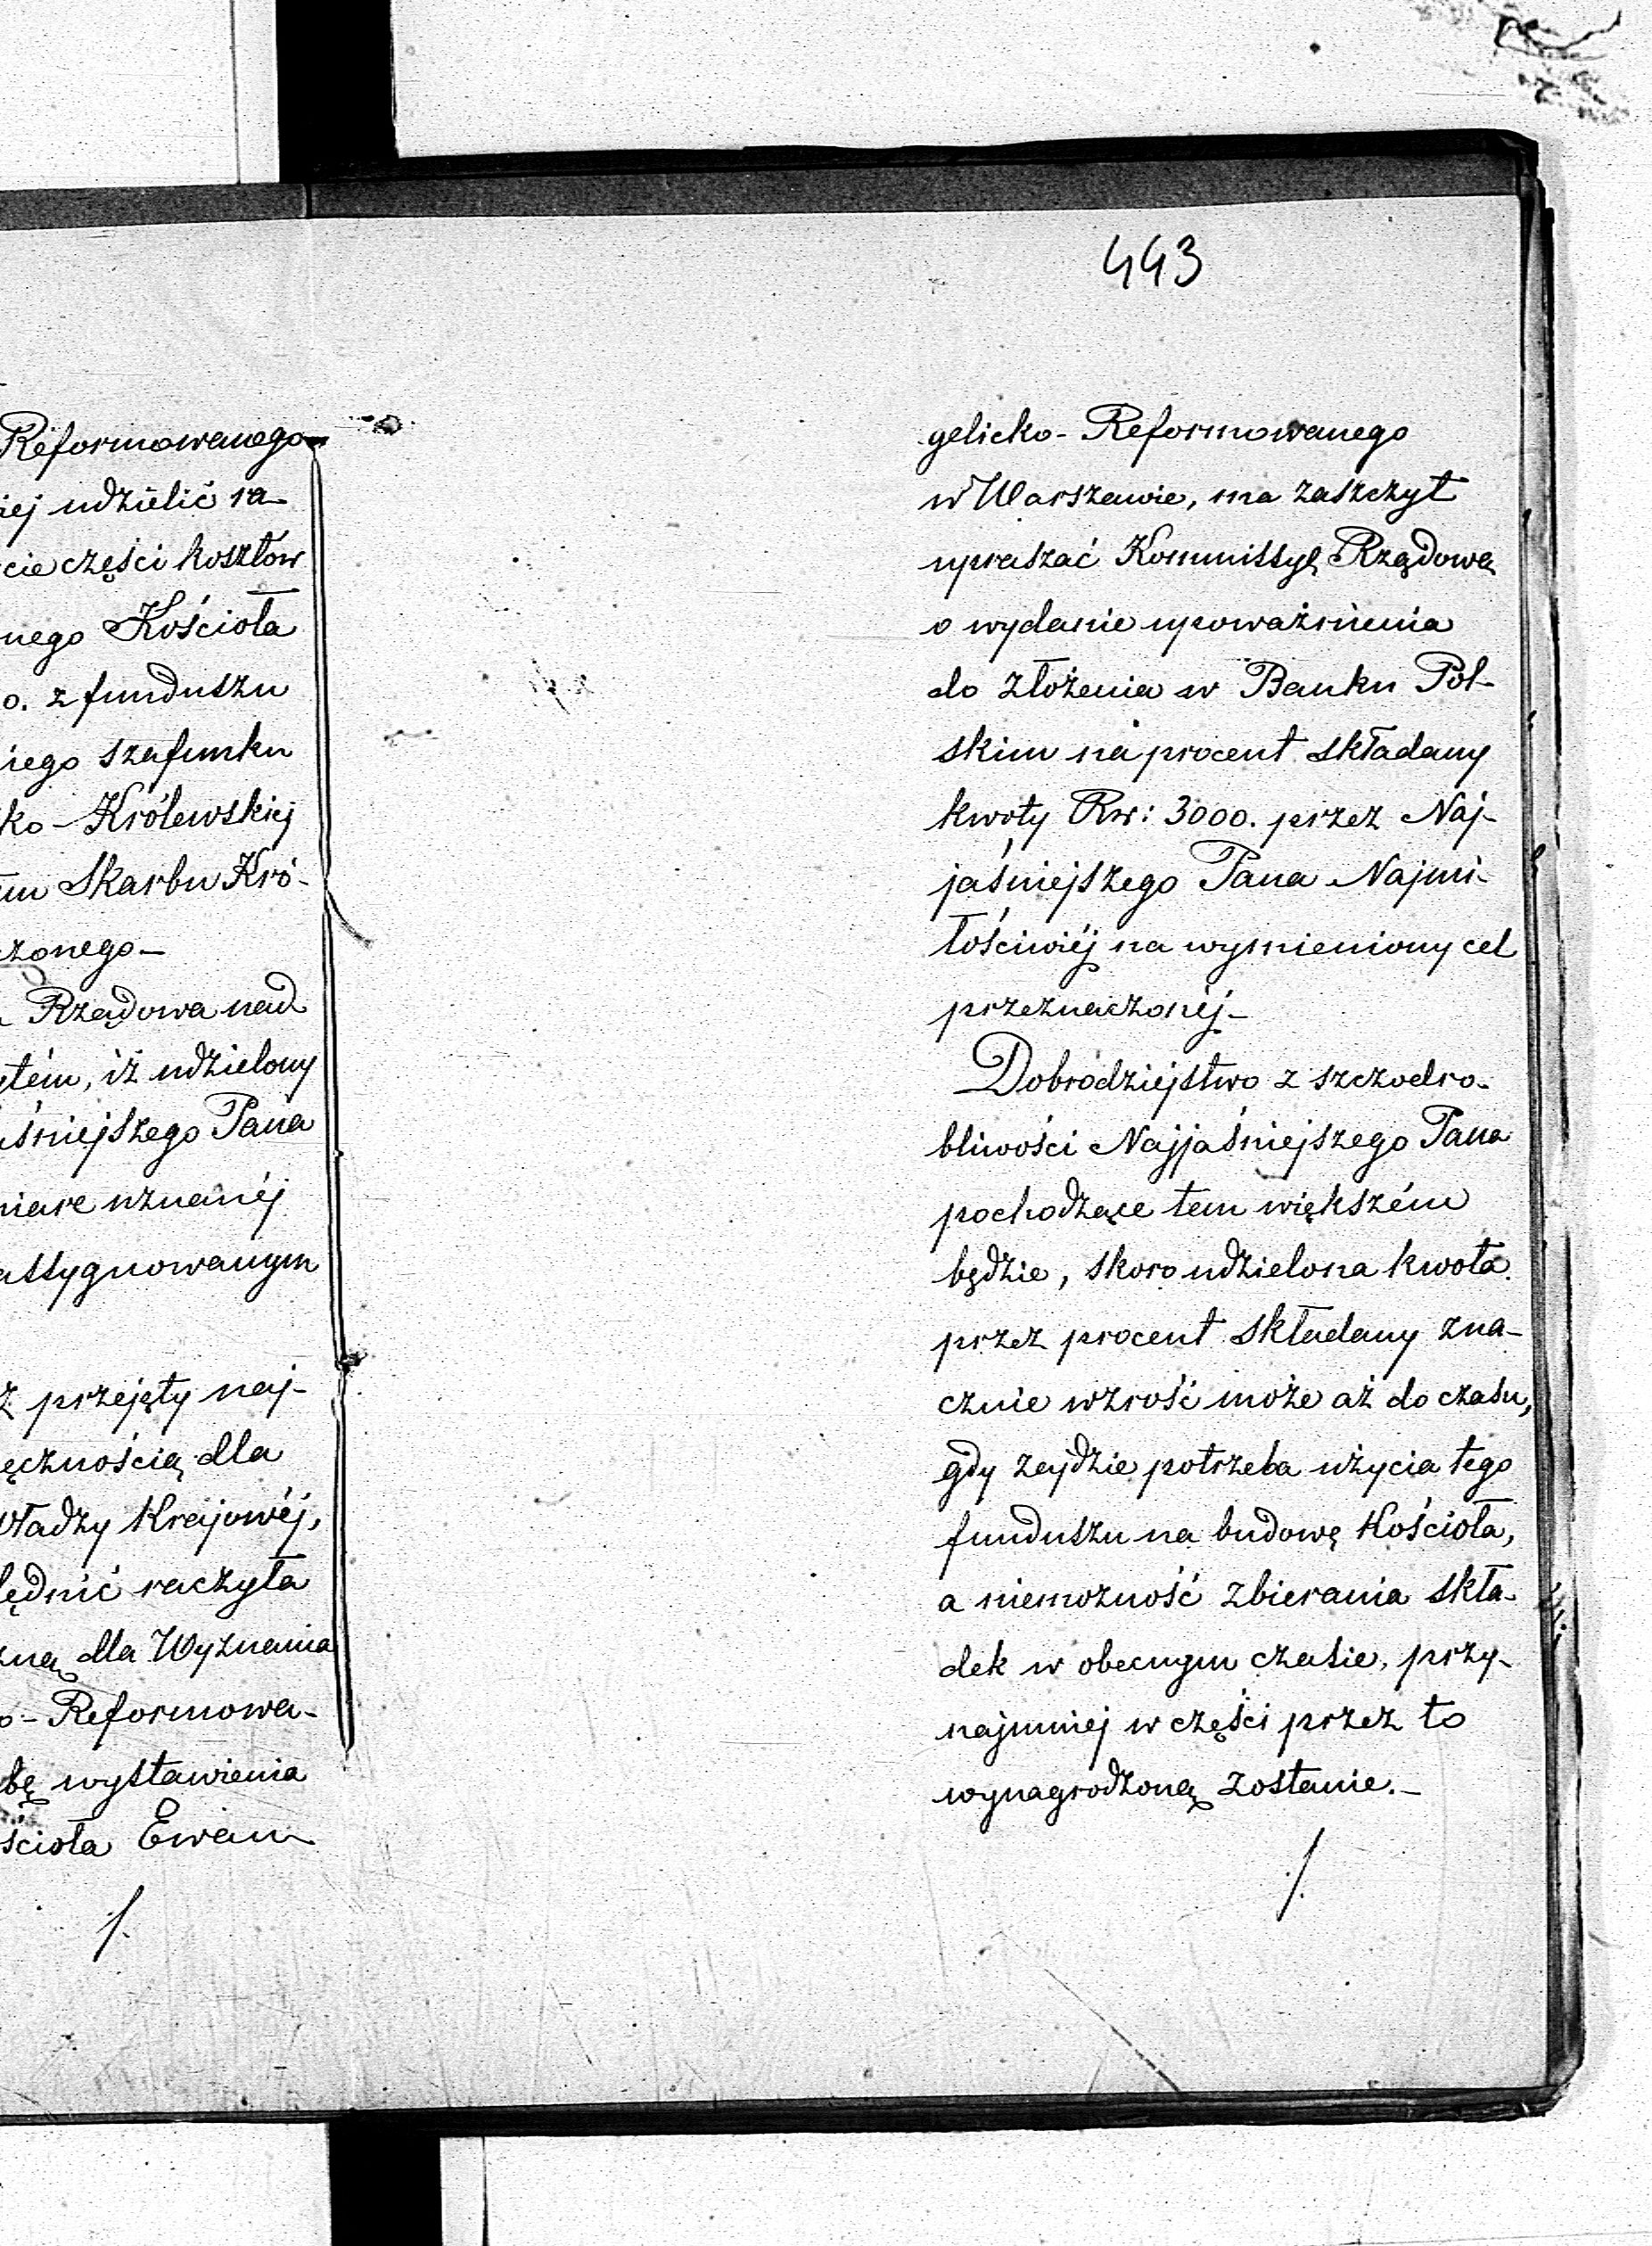 Reformowanego
iej udzielić ra-
cie części kosztów
nego Kościoła
o. z funduszu
iego szafunku
ko-Królewskiej
em Skarbu Kró-
czonego-
Rządowa nad
tém, iż udzielony
śniejszego Pana
miarę uznanéj
assygnowanym
ż przejęty naj-
ęcznością dla
władzy Krajowéj,
lędnić raczyła
zną dla Wyznania
o-Reformowa-
bę wystawienia
ścioła Ewan-
/.
443
gelicko-Reformowanego
w Warszawie, ma zaszczyt
upraszać Kommissyę Rządową
o wydanie upoważnienia
do złożenia w Banku Pol-
skim na procent składany
kwoty Rsr: 3000. przez Naj-
jaśniejszego Pana Najmi-
łościwiéj na wymieniony cel
przeznaczonéj-
Dobrodziejstwo z szczodro-
bliwości Najjaśniejszego Pana
pochodzące tem większém
będzie, skoro udzielona kwota
przez procent składany zna-
cznie wzrość może aż do czasu,
gdy zejdzie potrzeba użycia tego
funduszu na budowę Kościoła,
a niemozność zbierania skła-
dek w obecnym czasie, przy-
najmniej w części przez to
wynagrodzoną zostanie.-
/.